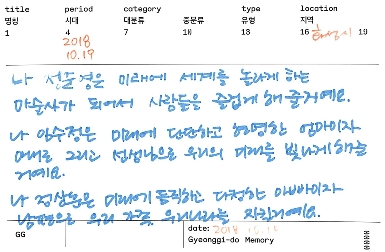 title period category type location
명칭 시대 대분류 중분류 유형 지역
1 4 7 10 13 16 화성시 19
2018
10.19
나 선율경은 미래에 세계를 놀라게 하는
마술사가 되어서 사람들을 즐겁게 해 줄거예요.
나 임수정은 미래에 단단하고 현명한 엄마이자
아내로 그리고 선생님으로 우리의 미래를 빛나게 해줄
거예요.
나 정상훈은 미래에 듬직하고 다정한 아빠이자
남편으로 우리 가족, 우리나라를 지킬거예요.
GG
date: 2018 10.19
Gyeonggi-do Memory